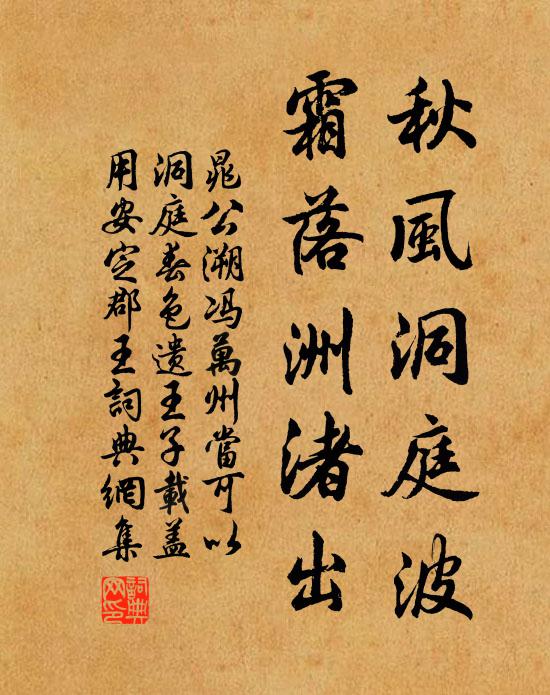 秋風洞庭波
霜落洲渚出
晁公溯馮萬州當可以
洞庭春色遺王子載蓋
用安定郡王詞典網集
詞典網印